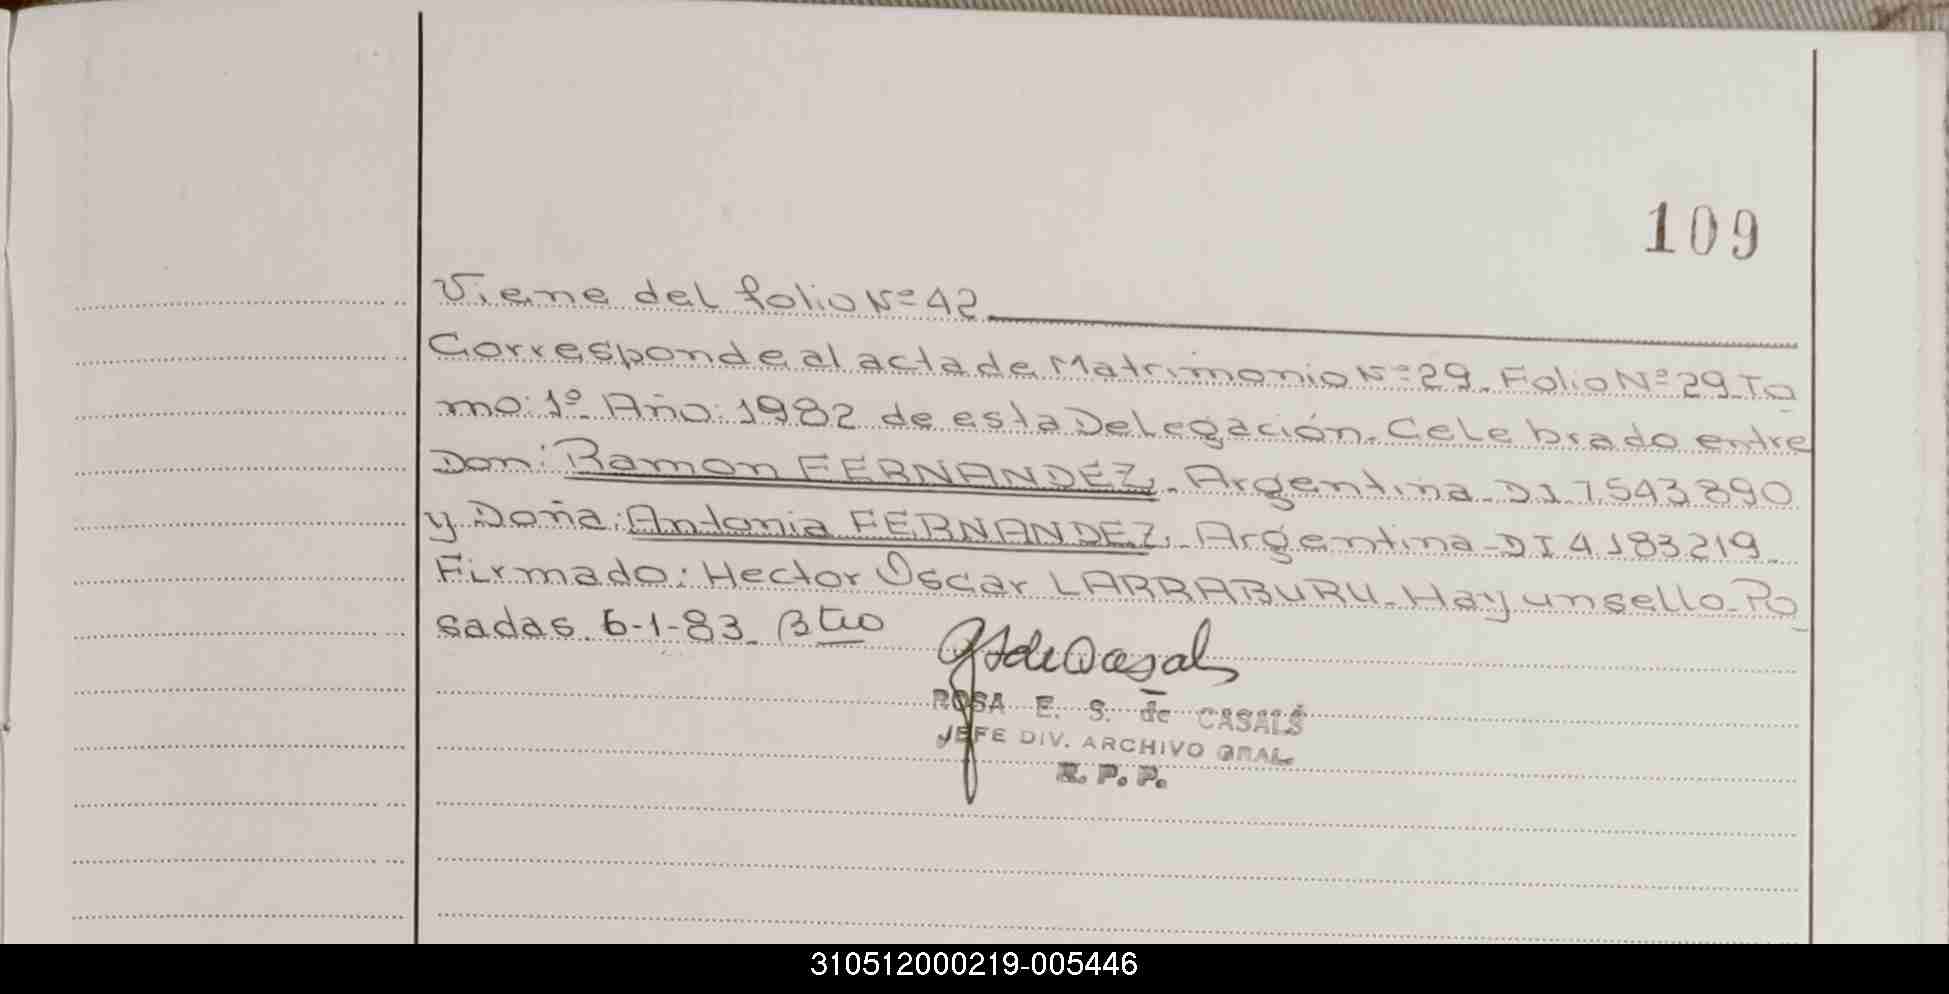 109
Viene del folio Nº 42
Corresponde al acta de Matrimonio Nº 29. Folio Nº 29 To
mo: 1º Año: 1982 de esta Delegación. Celebrado entre
Don: Ramon FERNANDEZ. Argentina - DI 7.543.890
y Doña: Antonia FERNANDEZ. Argentina - DI 4.183.219.
Firmado: Hector Oscar LARRABURU. Hay un sello. Po
sadas. 6-1-83.
de Casals
ROSA E. S. de CASALS
JEFE DIV. ARCHIVO GRAL.
R. P. P.
310512000219-005446